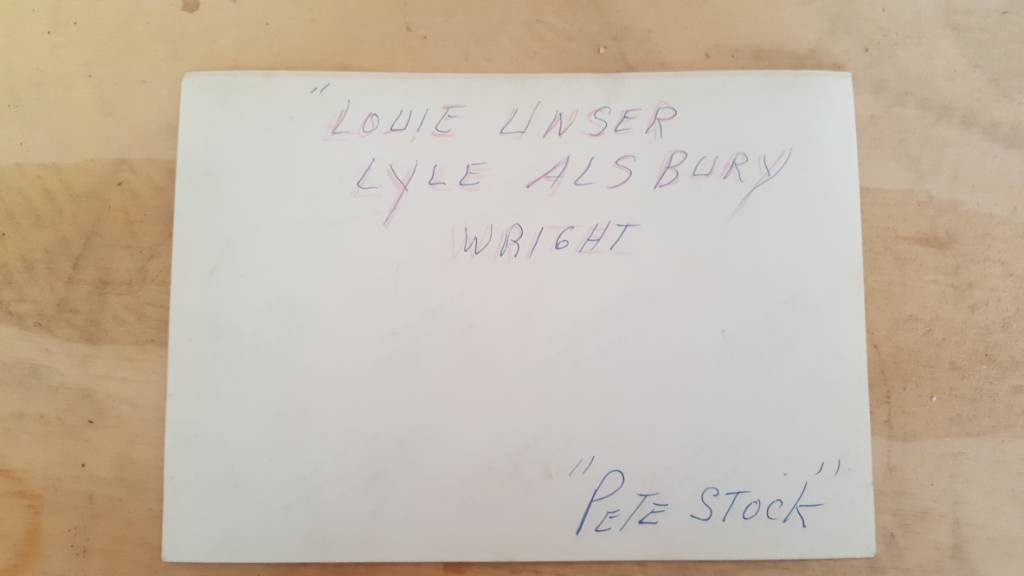 "LOUIE UNSER
LYLE ALSBURY
WRIGHT
"PETE STOCK"